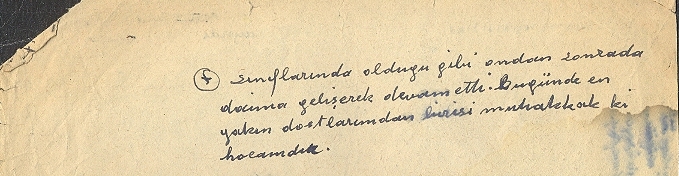 f sınıflarında olduğu gibi ondan sonrada
daima gelişerek devam etti. Bugünde en
yakın dostlarımdan birisi muhakkak ki
hocamdır.